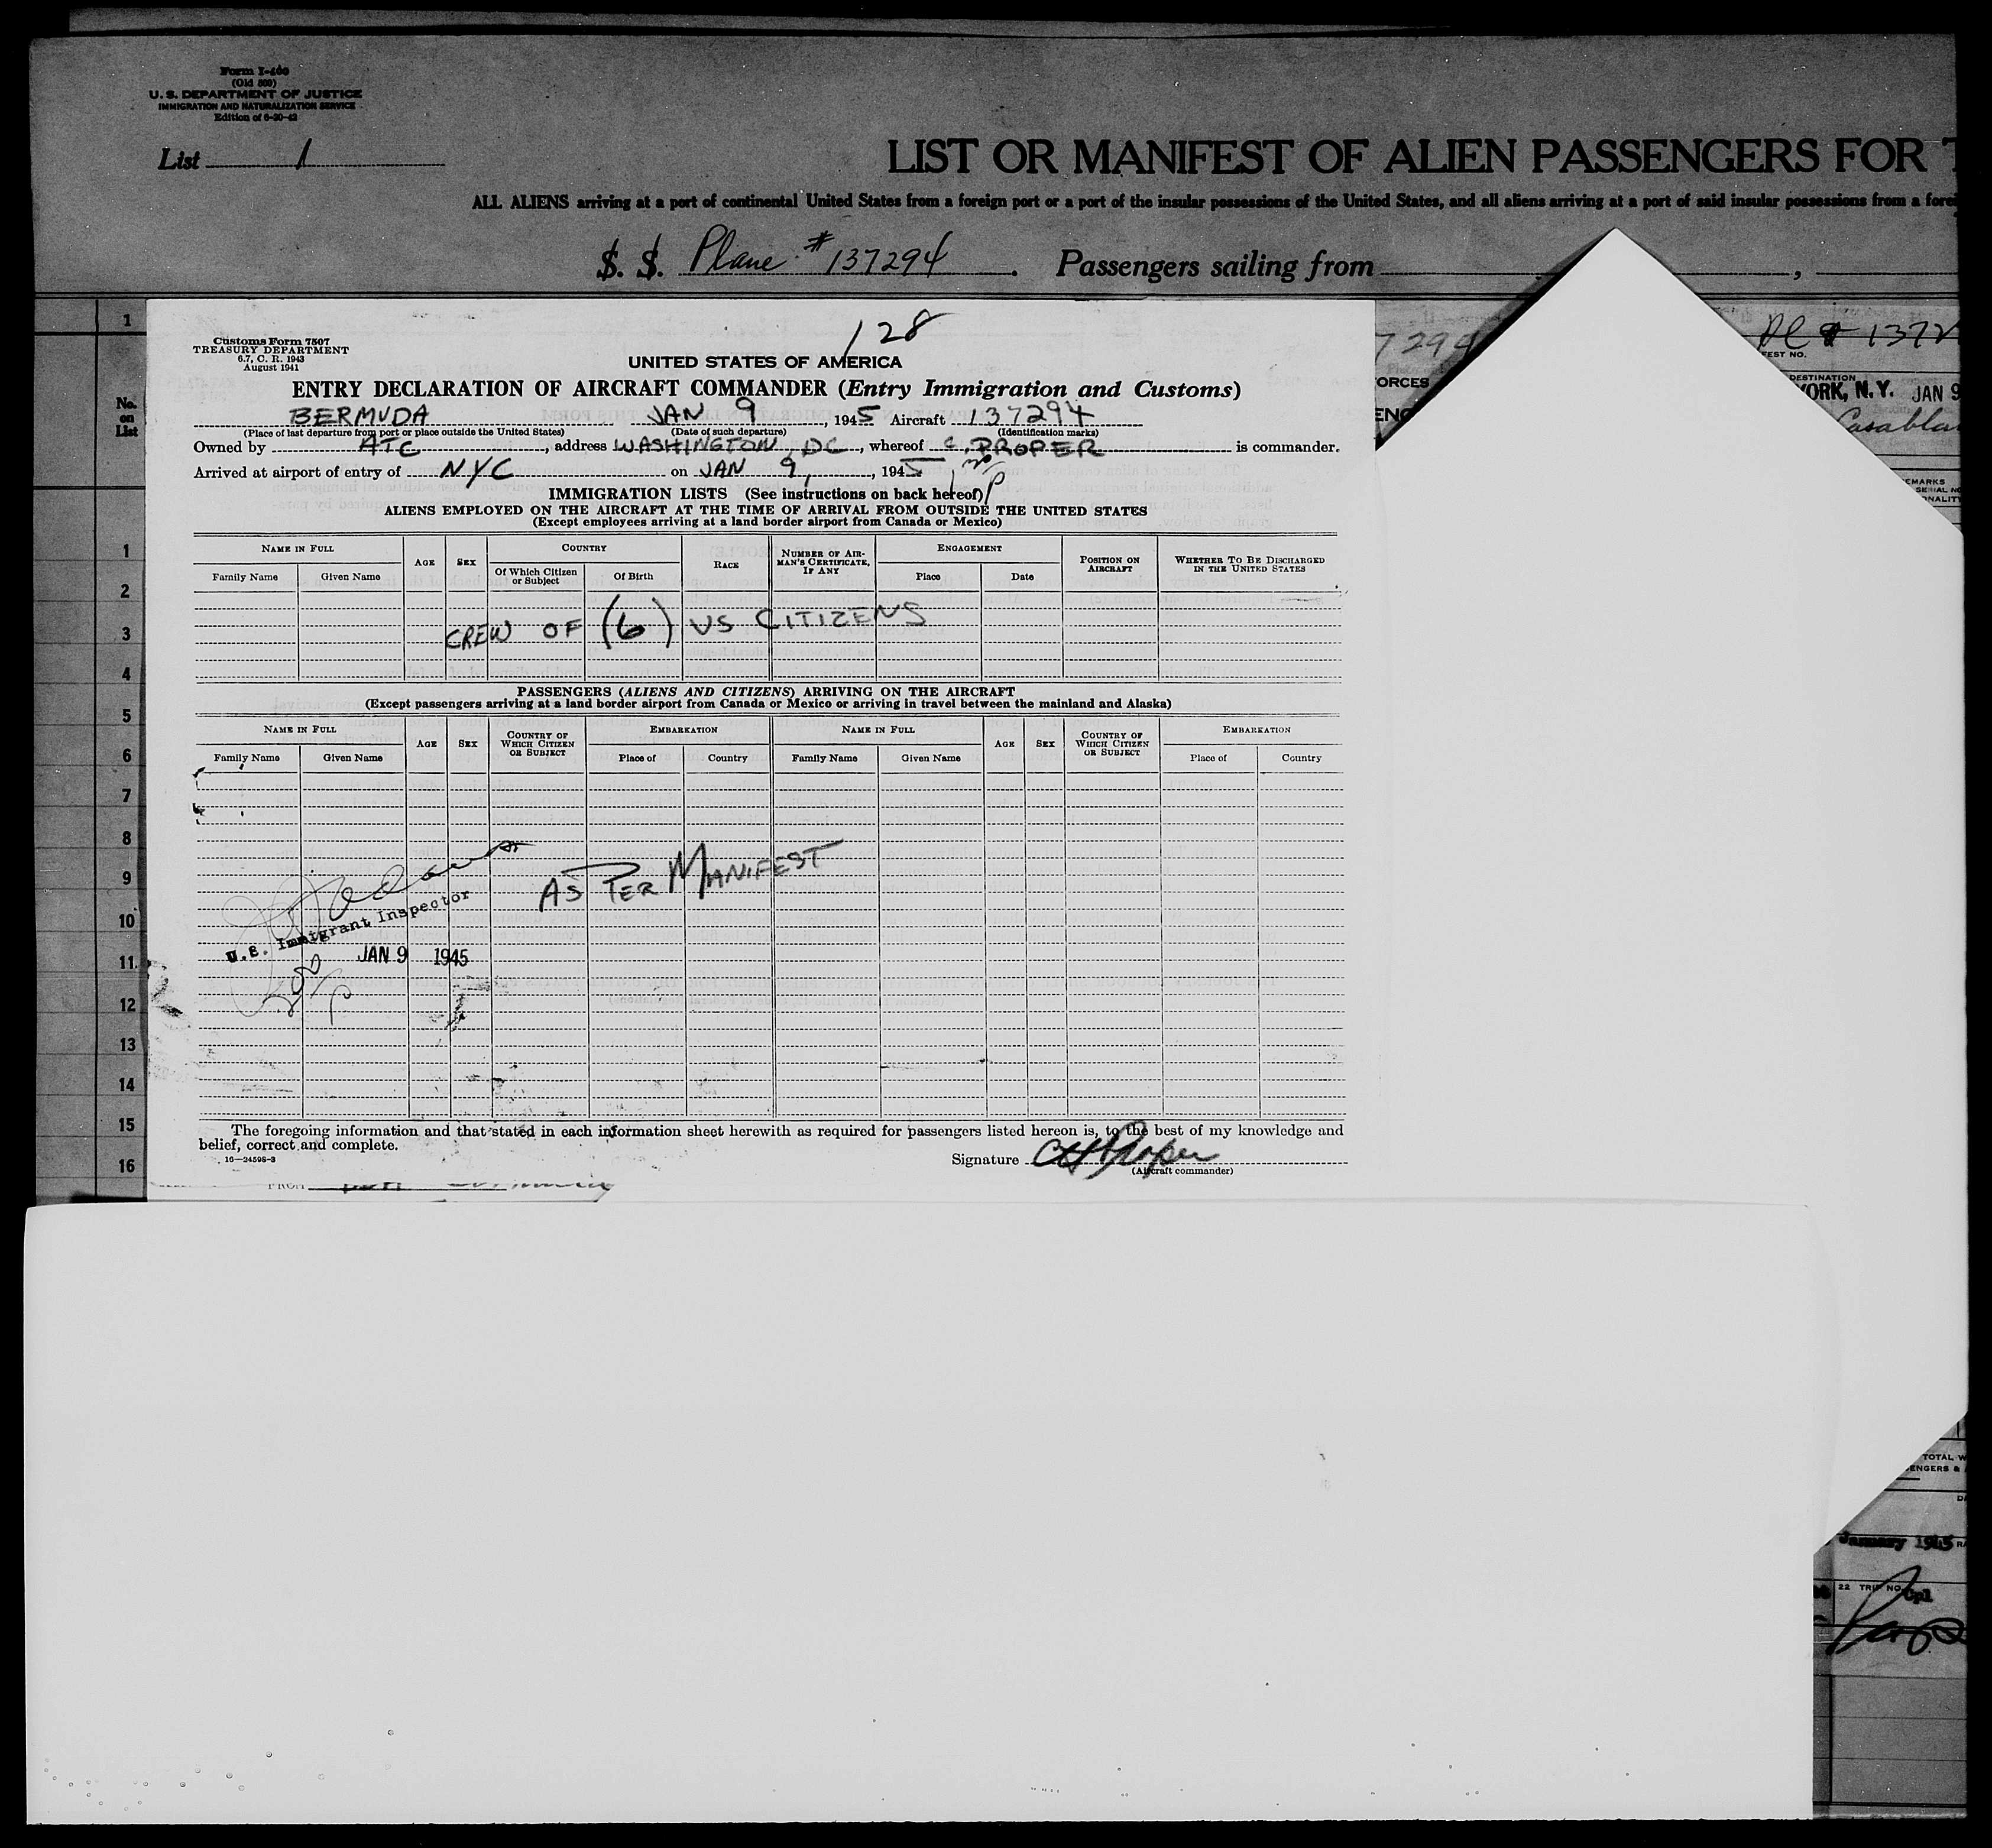 Form I-400
(Old 500)
U. S. DEPARTMENT OF JUSTICE
IMMIGRATION AND NATURALIZATION SERVICE
Edition of 6-20-42
List 1
LIST OR MANIFEST OF ALIEN PASSENGERS FOR T
ALL ALIENS arriving at a port of continental United States from a foreign port or a port of the insular possessions of the United States, and all aliens arriving at a port of said insular possessions from a forei
S. S. Plane # 137294. Passengers sailing from ,
1
No.
on
List
1
2
3
4
5
6
7
8
9
10
11
12
13
14
15
16
Customs Form 7507
TREASURY DEPARTMENT
6.7, C. R. 1943
August 1941
128
UNITED STATES OF AMERICA
ENTRY DECLARATION OF AIRCRAFT COMMANDER (Entry Immigration and Customs)
BERMUDA JAN 9, 1945 Aircraft 137294
(Place of last departure from port or place outside the United States) (Date of such departure) (Identification marks)
Owned by ATC, address WASHINGTON, DC, whereof C. PROPER is commander.
Arrived at airport of entry of NYC on JAN 9, 1945
IMMIGRATION LISTS (See instructions on back hereof)
ALIENS EMPLOYED ON THE AIRCRAFT AT THE TIME OF ARRIVAL FROM OUTSIDE THE UNITED STATES
(Except employees arriving at a land border airport from Canada or Mexico)
NAME IN FULL AGE SEX COUNTRY RACE NUMBER OF AIRMAN'S CERTIFICATE, IF ANY ENGAGEMENT POSITION ON AIRCRAFT WHETHER TO BE DISCHARGED IN THE UNITED STATES
Family Name Given Name Of Which Citizen or Subject Of Birth Place Date
CREW OF (6) US CITIZENS
PASSENGERS (ALIENS AND CITIZENS) ARRIVING ON THE AIRCRAFT
(Except passengers arriving at a land border airport from Canada or Mexico or arriving in travel between the mainland and Alaska)
NAME IN FULL AGE SEX COUNTRY OF WHICH CITIZEN OR SUBJECT EMBARKATION NAME IN FULL AGE SEX COUNTRY OF WHICH CITIZEN OR SUBJECT EMBARKATION
Family Name Given Name Place of Country Family Name Given Name Place of Country
AS PER MANIFEST
U.S. Immigrant Inspector
JAN 9 1945
The foregoing information and that stated in each information sheet herewith as required for passengers listed hereon is, to the best of my knowledge and
belief, correct and complete.
16—24598-3
Signature CH Proper
(Aircraft commander)
7294
ORCES
1372
EST NO.
DESTINATION
ORK, N.Y. JAN 9
Casablan
EMARKS
SERIAL NO
ONALITY
TOTAL W
ENGERS &
January 1945
22 TRIP NO.
Cpl